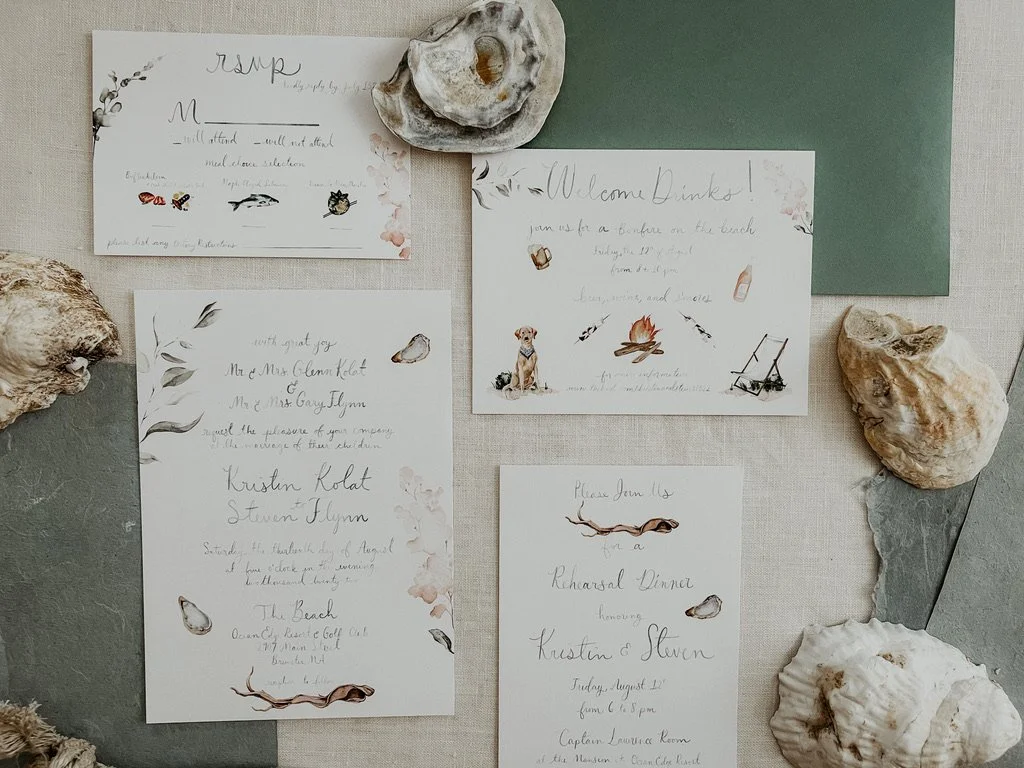 rsvp
kindly reply by July
M
_will attend _will not attend
meal choice selection
please list any Dietary Restrictions
Welcome Drinks!
join us for a Bonfire on the beach
Friday, the 12th of August
from 8 to 11 pm
beer, wine, and S'mores
for more information
with great joy
Mr & Mrs Glenn Kolat
&
Mr & Mrs Gary Flynn
request the pleasure of your company
at the marriage of their children
Kristin Kolat
to
Steven Flynn
Saturday, the thirteenth day of August
at five o'clock in the evening
two thousand twenty two
The Beach
Ocean Edge Resort & Golf Club
Main Street
Brewster, MA
reception to follow
Please Join Us
for a
Rehearsal Dinner
honoring
Kristin & Steven
Friday, August 12th
from 6 to 8 pm
Captain Lawrence Room
at the Mansion at Ocean Edge Resort